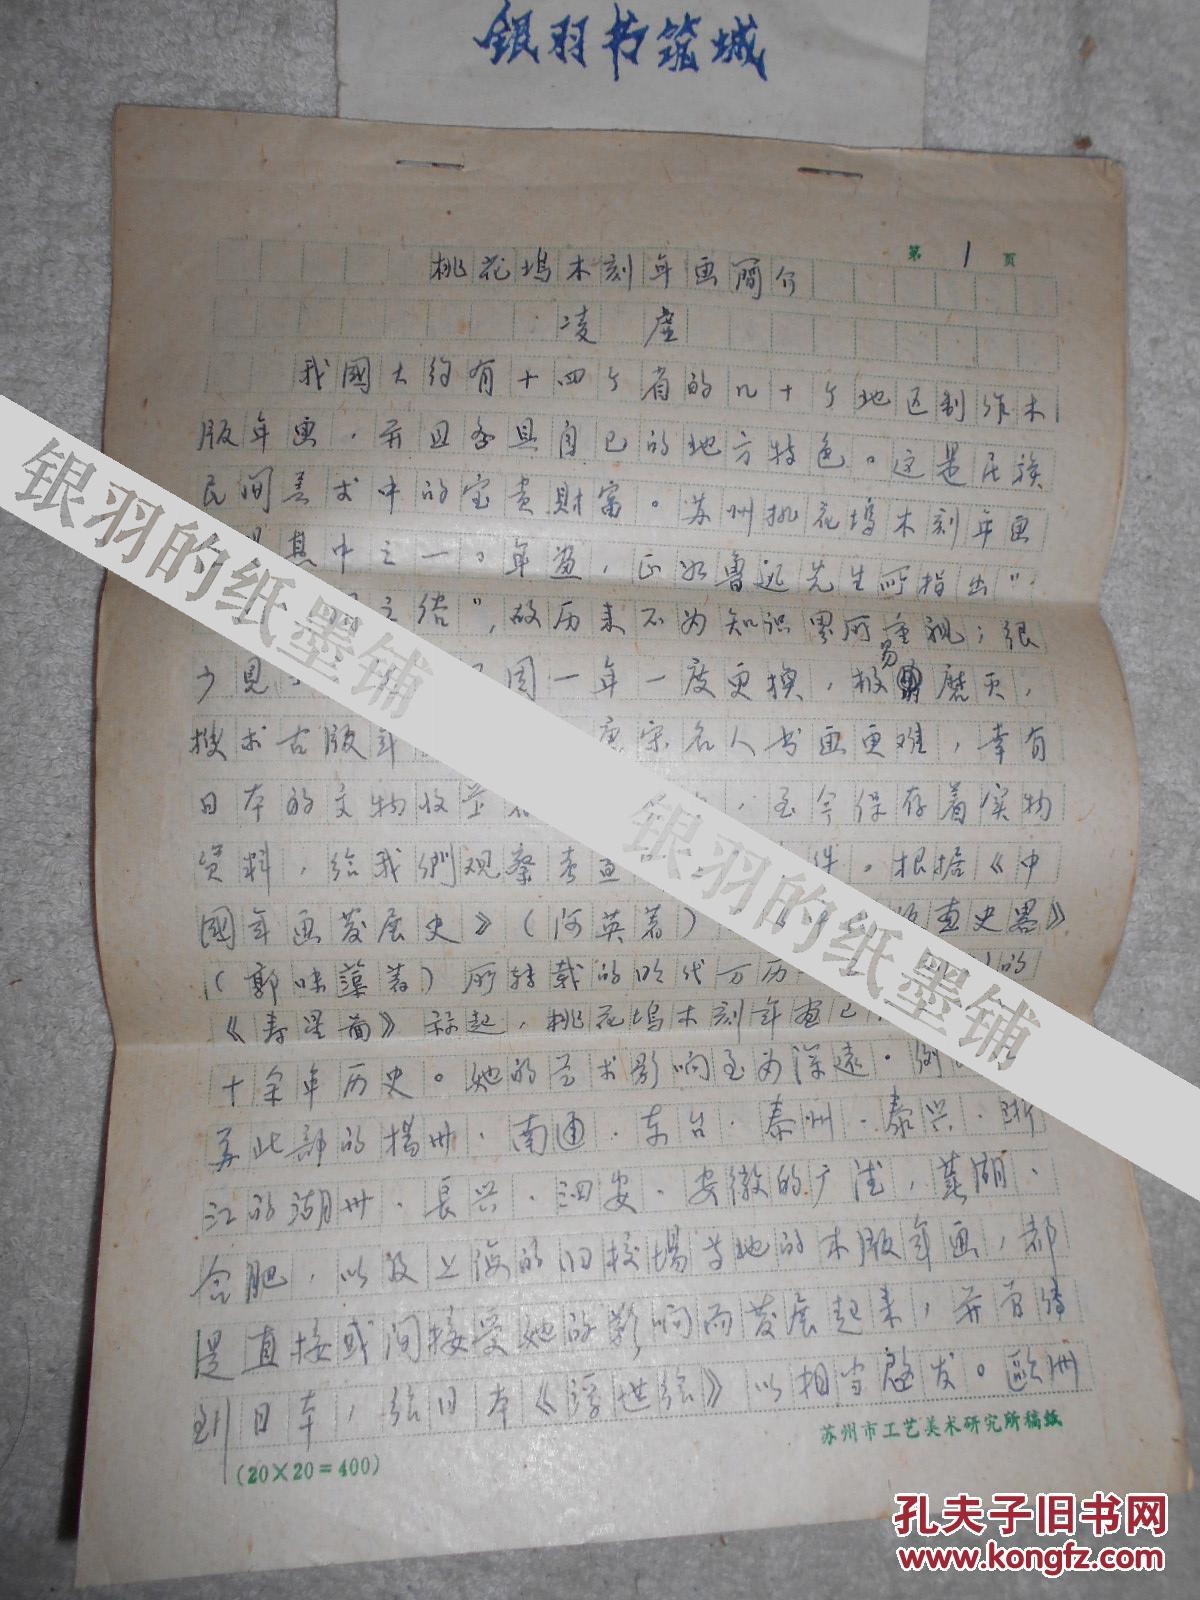 银羽书筑城
第 1 页
桃花坞木刻年画簡介
凌虚
我國大约有十四个省的几十个地区制作木
版年画，并且各具自己的地方特色。这是民族
民间美术中的宝贵財富。苏州桃花坞木刻年画
其中之一。年画，正如鲁迅先生所指出"
之俗"，故历来不为知识界所重視；很
少見 因一年一度更换，极易磨灭，
搜求古版年 唐宋名人书画更难，幸有
日本的文物收 至今保存着实物
资料，给我们观察查 件。根据《中
國年画发展史》（阿英著） 版画史畧》
（郭味蕖著）所转载的明代万历 的
《寿星图》称起，桃花坞木刻年画已
十余年历史。她的艺术影响至为深遠。例
苏北部的揚州、南通、东台、泰州、泰兴、浙
江的湖州、長兴、泗安、安徽的广德，蕪湖、
合肥，以及上海的旧校場等地的木版年画，都
是直接或间接受她的影响而发展起来，并曾傳
到日本，给日本《浮世绘》以相当啓发。歐洲
(20×20=400)
苏州市工艺美术研究所稿紙
银羽的纸墨铺
银羽的纸墨铺
孔夫子旧书网
www.kongfz.com